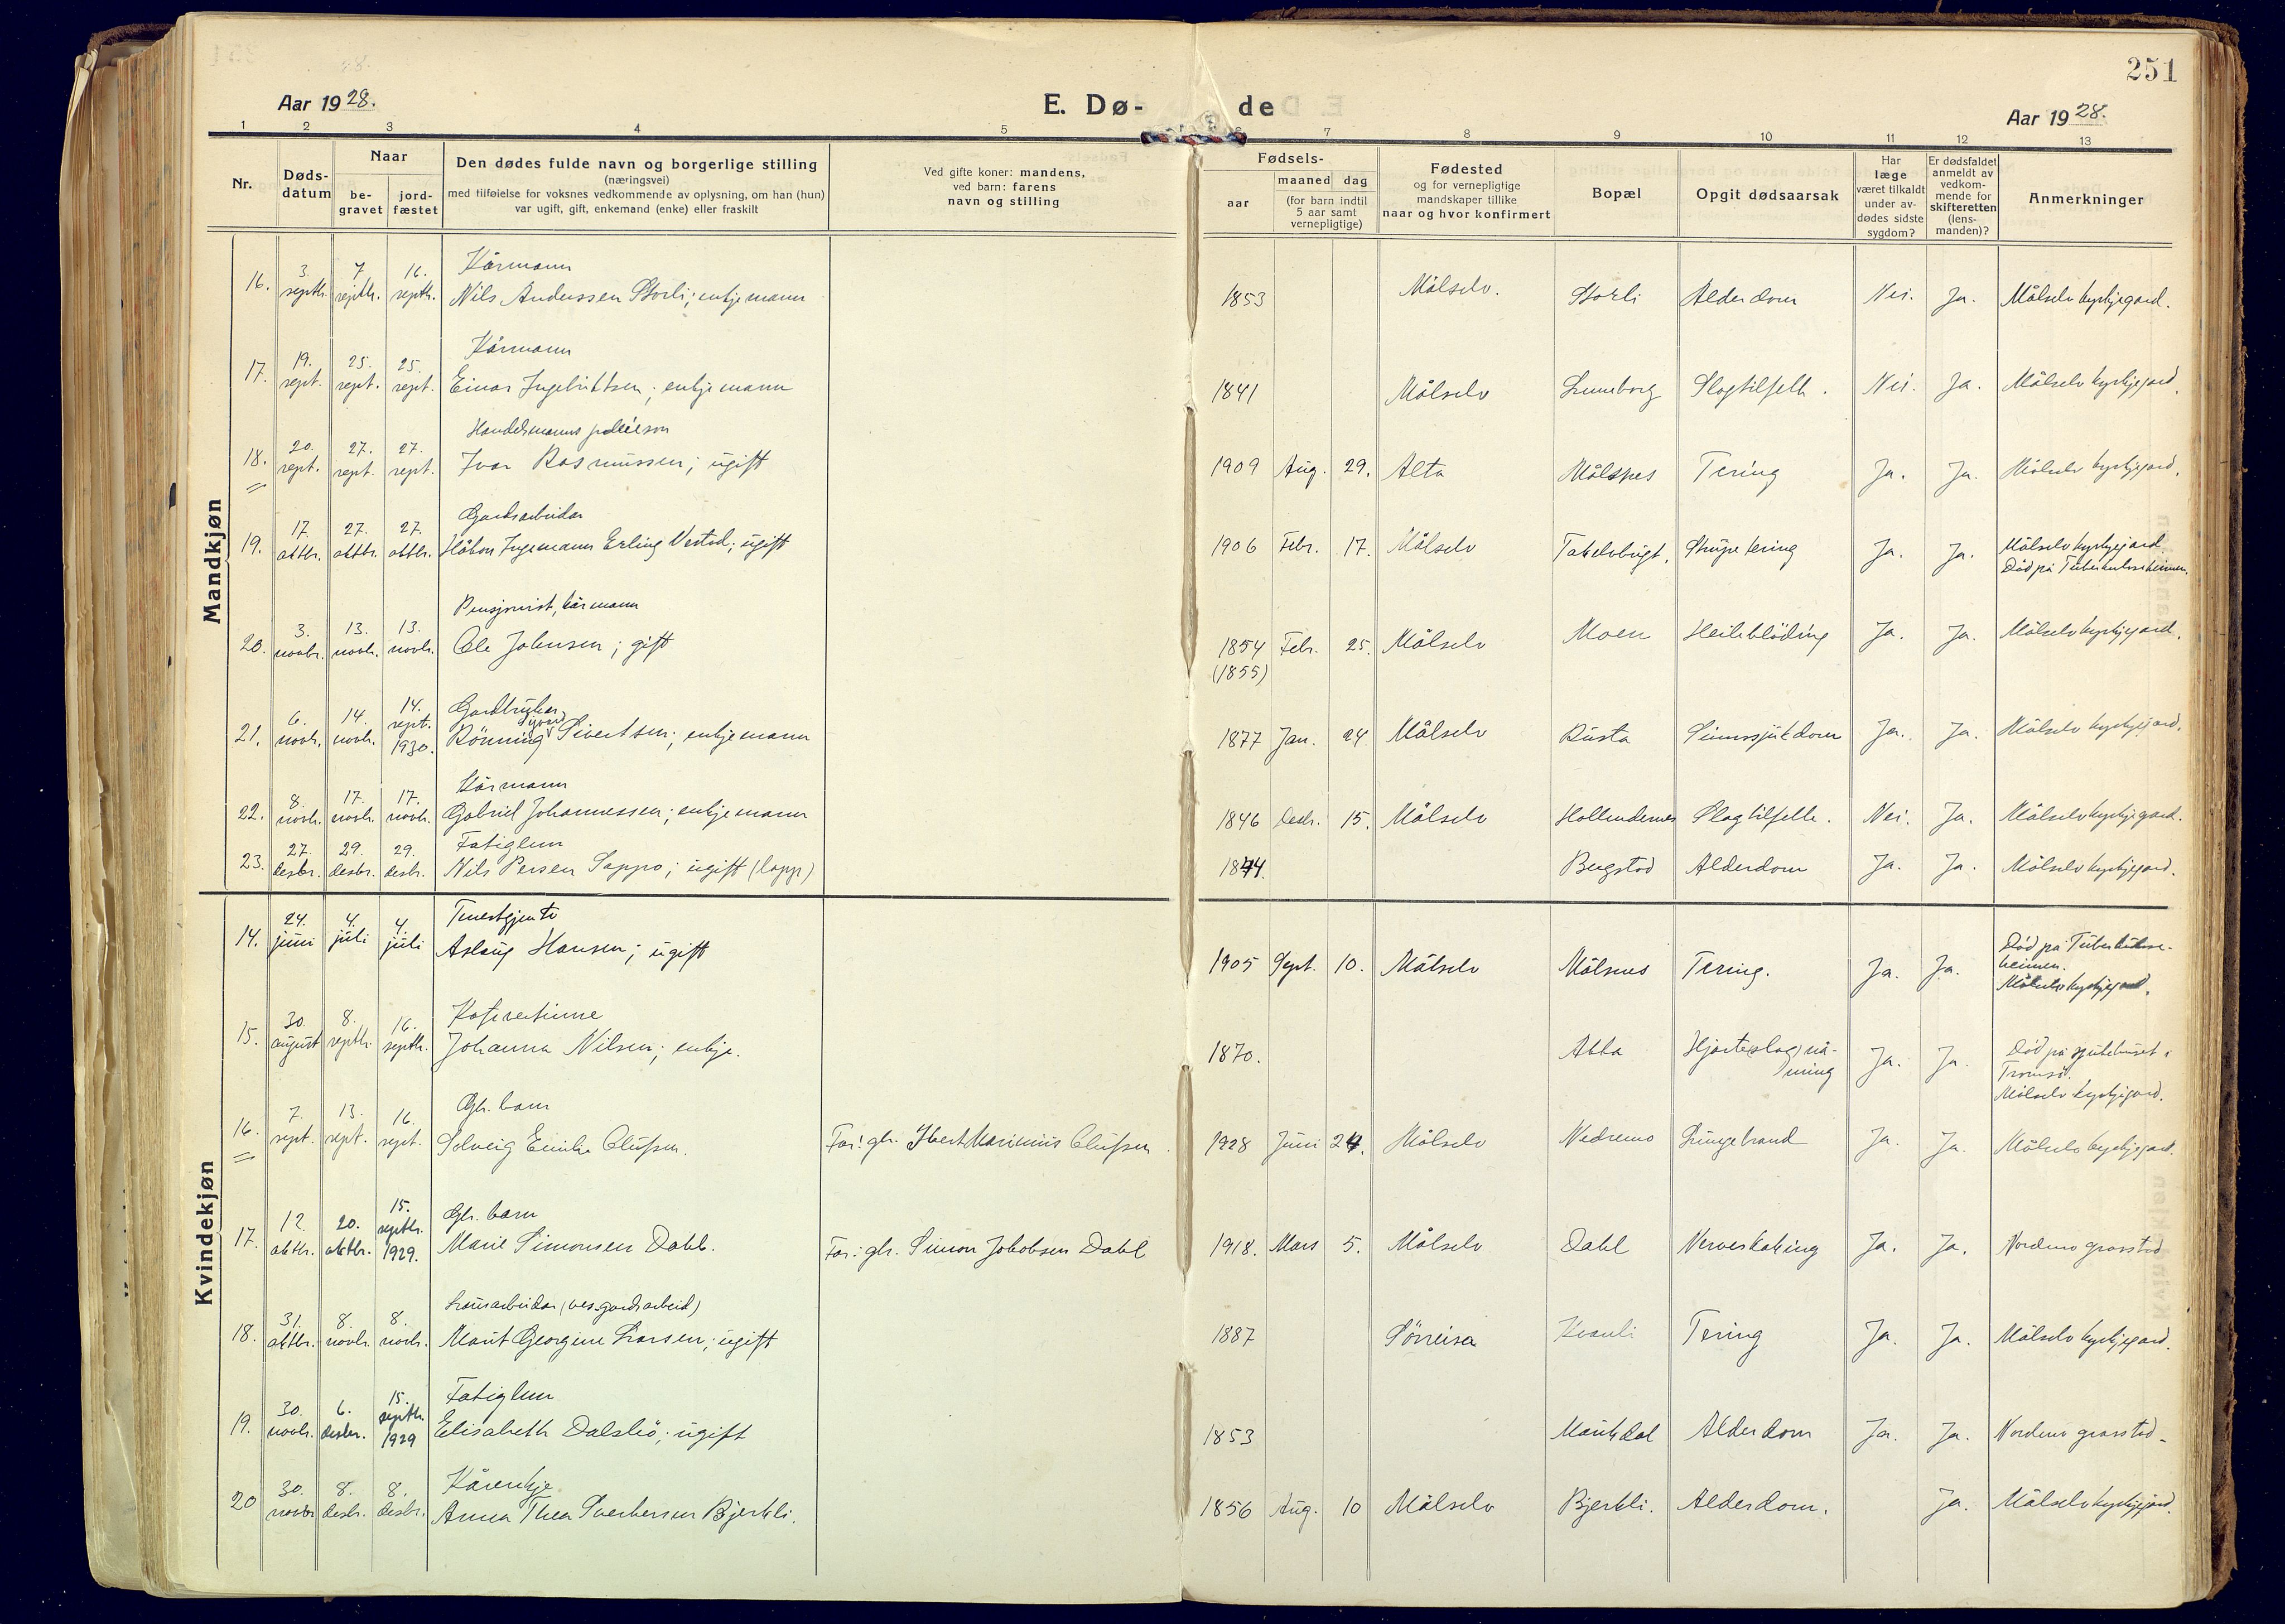 251
Aar 1928.
E. Dø-
de
Aar 1928.
1 2 3 4 5 6 7 8 9 10 11 12 13
Nr.
Døds-
datum
Naar
be-
gravet
jord-
fæstet
Den dødes fulde navn og borgerlige stilling
(næringsvei)
med tilføielse for voksnes vedkommende av oplysning, om han (hun)
var ugift, gift, enkemand (enke) eller fraskilt
Ved gifte koner: mandens,
ved barn: farens
navn og stilling
Fødsels-
aar
maaned dag
(for barn indtil
5 aar samt
vernepligtige)
Fødested
og for vernepligtige
mandskaper tillike
naar og hvor konfirmert
Bopæl
Opgit dødsaarsak
Har
læge
været tilkaldt
under av-
dødes sidste
sygdom?
Er dødsfaldet
anmeldt av
vedkom-
mende for
skifteretten
(lens-
manden)?
Anmerkninger
Mandkjøn
3. 7 16. Kårmann
16. septbr. septbr. septbr. Nils Anderssen Storli; enkjemann 1853 Målselv. Storli Alderdom Nei. Ja. Målselv kyrkjegard.
19. 25. 25. Kårmann
17. sept. sept. sept. Einar Ingebriktsen; enkjemann 1841 Målselv Luneborg Slagtilfelle. Nei. Ja. Målselv kyrkjegard.
20. 27. 27. Handelsmanns
18. sept. sept. sept. Ivar Rasmussen; ugift 1909 Aug. 29. Alta Målsnes Tering Ja. Ja. Målselv kyrkjegard.
17. 27. 27. Gardsarbeidar
19. oktbr. oktbr. oktbr. Håkon Ingemann Erling Vestad; ugift 1906 Febr. 17. Målselv Takelvbugt. Strupetering Ja. Ja. Målselv kyrkjegard.
Död på Tuberkuloseheimen.
3. 13. 13. Pensjonist, kårmann
20. novbr. novbr. novbr. Ole Johnsen; gift 1854 Febr. 25. Målselv Moen Heileblöding Ja. Ja. Målselv kyrkjegard.
(1855)
6. 14. 14. Gardbrukar
21. novbr. novbr. sept. 1930. Rönning Sivertsen; enkjemann 1877 Jan. 24. Målselv Rusta Sinnssjukdom Ja. Ja. Målselv kyrkjegard.
8. 17. 17. Kårmann
22. novbr. novbr. novbr. Gabriel Johannessen; enkjemann 1846 Desbr. 15. Målselv Hollendernes Slagtilfelle. Nei. Ja. Målselv kyrkjegard.
27. 29. 29. Fatiglem
23. desbr. desbr. desbr. Nils Persen Sappo; ugift (lapp) 1844. Bergstad Alderdom Ja. Ja. Målselv kyrkjegard.
Kvindekjøn
24. 4. 4. Tenestgjente
14. juni juli juli Aslaug Hansen; ugift 1905 Sept. 10. Målselv Målsnes Tering. Ja. Ja. Död på Tuberkulose-
heimen.
Målselv kyrkjegard.
30. 8. 16.
15. august septbr. septbr. Johanna Nilsen; enkje. 1870. Hjarteslag Ja. Ja. Död på sjukehuset i
Tromsö.
Målselv kyrkjegard.
7. 13. 16. Gbr. barn
16. sept. sept. sept. Solveig Emilie Olufsen. Far: gbr. Marenius Olufsen 1928 Juni 24. Målselv Nedremo Lungebrand Ja. Ja. Målselv kyrkjegard.
12. 20. 15. Gbr. barn
17. oktbr. oktbr. septbr. 1929. Marie Simonsen Dahl. Far: gbr. Simon Jakobsen Dahl 1918. Mars 5. Målselv Dahl Nervesvekking Ja. Ja. Nordmo gravstad
31. 8. 8. Lausarbeidar (ves. gardsarbeid)
18. oktbr. novbr. novbr. Marit Georgine Larsen; ugift 1887 Sörreisa Kvanli Tering Ja. Ja. Målselv kyrkjegard.
30. 6. 15. Fatiglem
19. novbr. desbr. septbr. 1929 Elisabeth Dalsbö; ugift 1853 Maukdal Alderdom Ja. Ja. Nordmo gravstad.
30. 8. 8. Kårenkje
20 novbr desbr. desbr. Anna Thea Bjerkli. 1856 Aug. 10 Målselv Bjerkli. Alderdom. Ja. Målselv kyrkjegard.